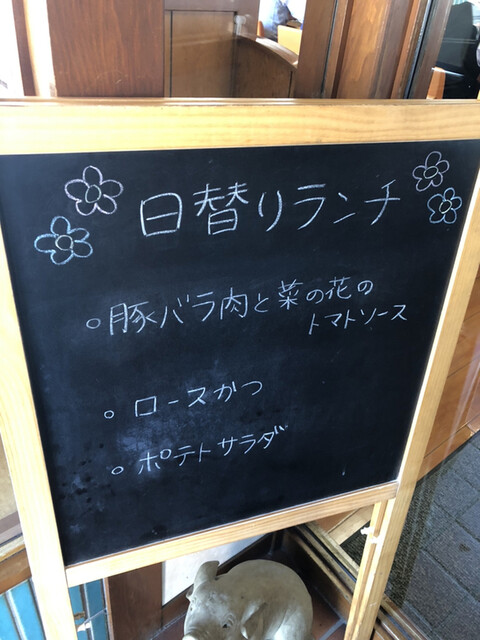 日替りランチ
○豚バラ肉と菜の花の
トマトソース
○ロースかつ
○ポテトサラダ